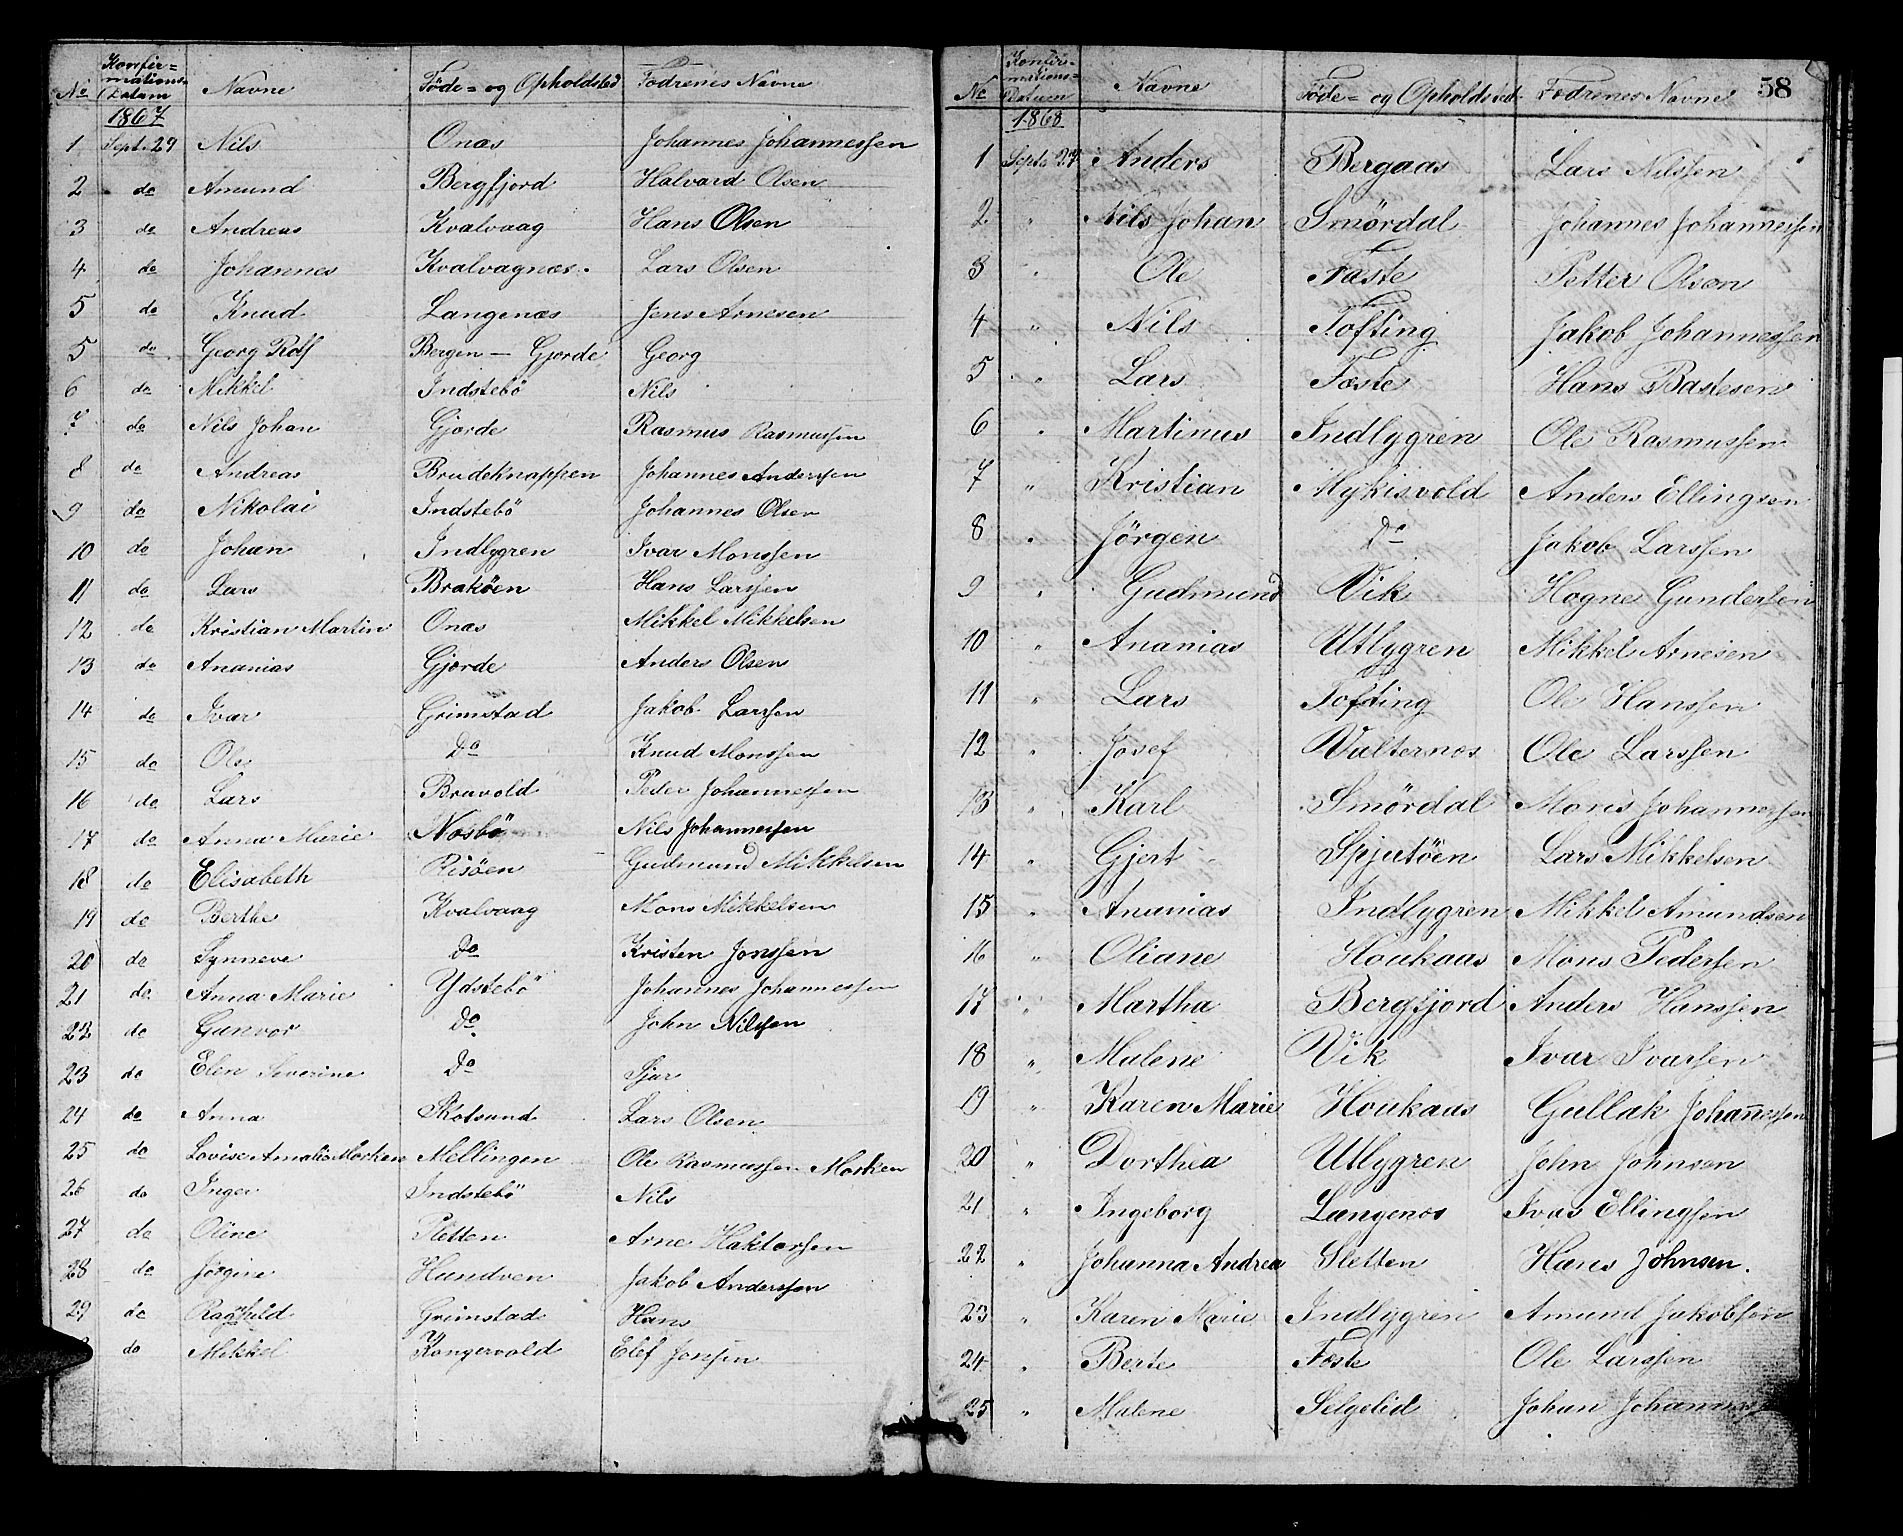 No Konfirmations-Datum Navne Føde- og Opholdsted Fædrenes Navne
1867
1 Sept. 29 Nils Onæs Johannes Johannessen
2 do Amund Bergfjord Halvard Olsen
3 do Andreas Kvalvaag Hans Olsen
4 do Johannes Kvalvagnæs Lars Olsen
5 do Knud Langenæs Jens Arnesen
5 do Georg Rolf Bergen - Gjerde Georg
6 do Mikkel Indstebö Nils
7 do Nils Johan Gjerde Rasmus Rasmussen
8 do Andreas Brudeknappen Johannes Anderssen
9 do Nikolai Indstebö Johannes Olsen
10 do Johan Indlygren Ivar Monssen
11 do Lars Brakøen Hans Larssen
12 do Kristian Martin Onæs Mikkel Mikkelsen
13 do Ananias Gjerde Anders Olsen
14 do Ivar Grimstad Jakob Larssen
15 do Ole Do Knud Monssen
16 do Lars Bruvold Peder Johannessen
17 do Anna Marie Nosbö Nils Johannessen
18 do Elisabeth Risöen Gudmund Mikkelsen
19 do Berthe Kvalvaag Mons Mikkelsen
20 do Synneve Do Kristen Jonssen
21 do Anna Marie Ydstebö Johannes Johannessen
22 do Gunvor Do John Nilssen
23 do Elen Severine Do Sjur
24 do Anna Skotsund Lars Olsen
25 do Lovise Amalia Morken Mellingen Ole Rasmussen Morken
26 do Inger Indstebö Nils
27 do Oline Sletten Arne Haktorsen
28 do Jørgine Hundven Jakob Anderssen
29 do Ragnhild Grimstad Hans
do Mikkel Kongervold Elef Jonsen
58
No Konfirmations-Datum Navne Føde- og Opholdsted Fædrenes Navne
1868
1 Sept. 27 Anders Bergaas Lars Nilssen
2 " Nils Johan Smördal Johannes Johannessen
3 " Ole Fæste Petter Olsen
4 " Nils Tofting Jakob Johannessen
5 " Lars Fæste Hans Bastesen
6 " Martinus Indlygren Ole Rasmussen
7 " Kristian Mykisvold Anders Ellingsen
8 " Jørgen Do Jakob Larssen
9 " Gudmund Vik Hogne Gundersen
10 " Ananias Utlygren Mikkel Arnesen
11 " Lars Tofting Ole Hanssen
12 " Josef Valternes Ole Larssen
13 " Karl Smördal Mons Johannessen
14 " Gjert Spjutöen Lars Mikkelsen
15 " Ananias Indlygren Mikkel Amundsen
16 " Oliane Houkaas Mons Pedersen
17 " Martha Bergfjord Anders Hanssen
18 " Malene Vik Ivar Ivarsen
19 " Karen Marie Houkaas Gullak Johan̄essen
20 " Dorthea Utlygren John Johnsen
21 " Ingeborg Langenæs Ivar Ellingsen
22 " Johanna Andrea Sletten Hans Johnsen.
23 " Karen Marie Indlygren Amund Jakobsen
24 " Berte Fæste Ole Larssen
25 " Malene Selgelid Johan